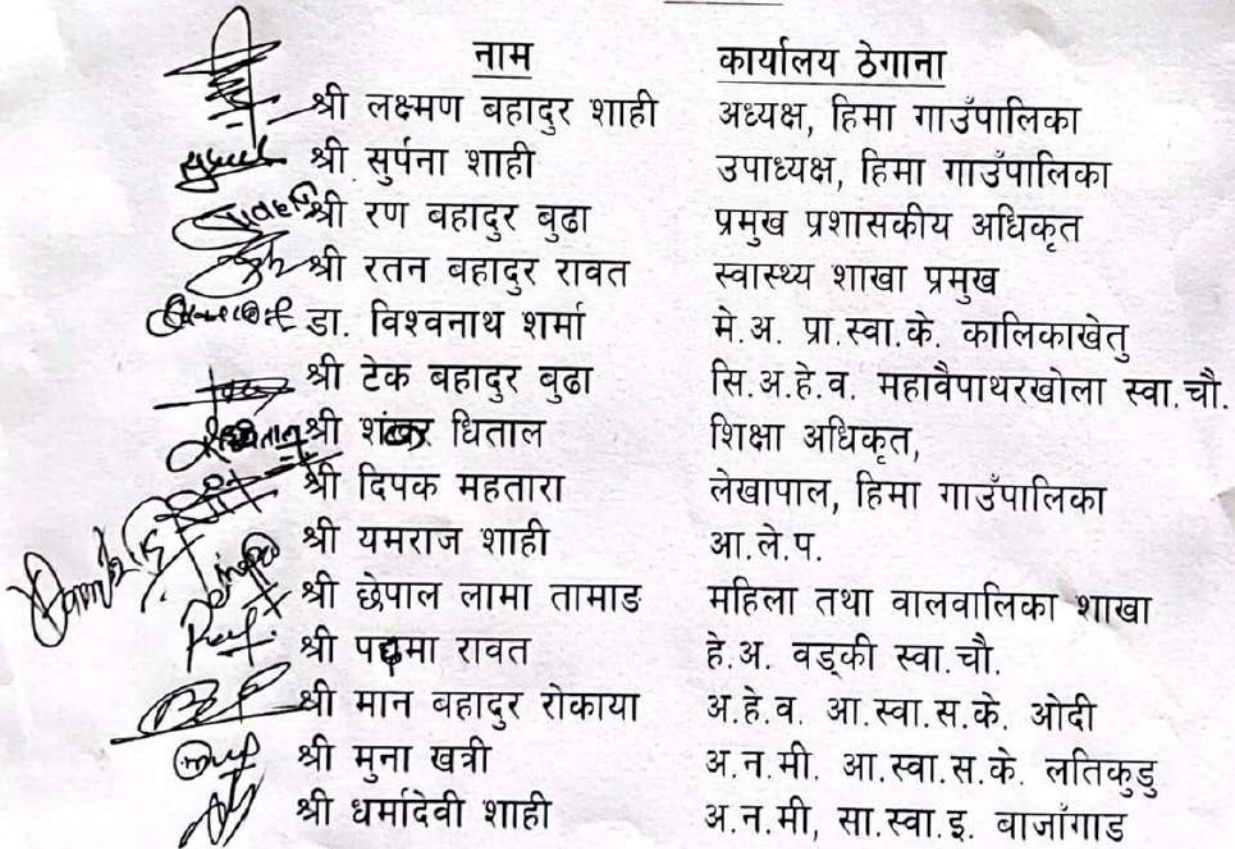 नाम कार्यालय ठेगाना
श्री लक्ष्मण बहादुर शाही अध्यक्ष, हिमा गाउँपालिका
श्री सुर्पना शाही उपाध्यक्ष, हिमा गाउँपालिका
श्री रण बहादुर बुढा प्रमुख प्रशासकीय अधिकृत
श्री रतन बहादुर रावत स्वास्थ्य शाखा प्रमुख
डा. विश्वनाथ शर्मा मे.अ. प्रा.स्वा.के. कालिकाखेतु
श्री टेक बहादुर बुढा सि.अ.हे.व. महावैपाथरखोला स्वा.चौ.
श्री शंकर धिताल शिक्षा अधिकृत,
श्री दिपक महतारा लेखापाल, हिमा गाउँपालिका
श्री यमराज शाही आ.ले.प.
श्री छेपाल लामा तामाङ महिला तथा वालवालिका शाखा
श्री पद्मा रावत हे.अ. वड्की स्वा.चौ.
श्री मान बहादुर रोकाया अ.हे.व. आ.स्वा.स.के. ओदी
श्री मुना खत्री अ.न.मी. आ.स्वा.स.के. लतिकुडु
श्री धर्मादेवी शाही अ.न.मी, सा.स्वा.इ. बाजाँगाड